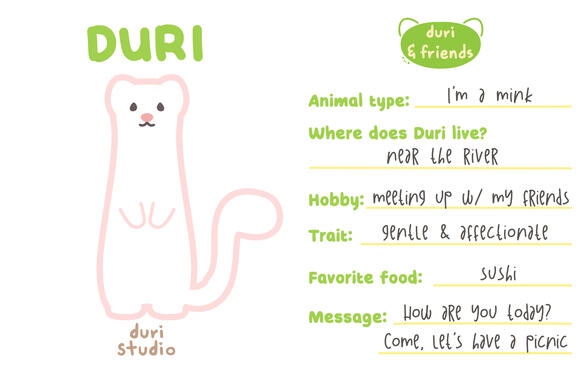 DURI
duri
studio
duri
& friends
Animal type: I'm a mink
Where does Duri live?
near the River
Hobby: meeting up w/ my friends
Trait: gentle & affectionate
Favorite food: sushi
Message: How are you today?
Come, let's have a picnic